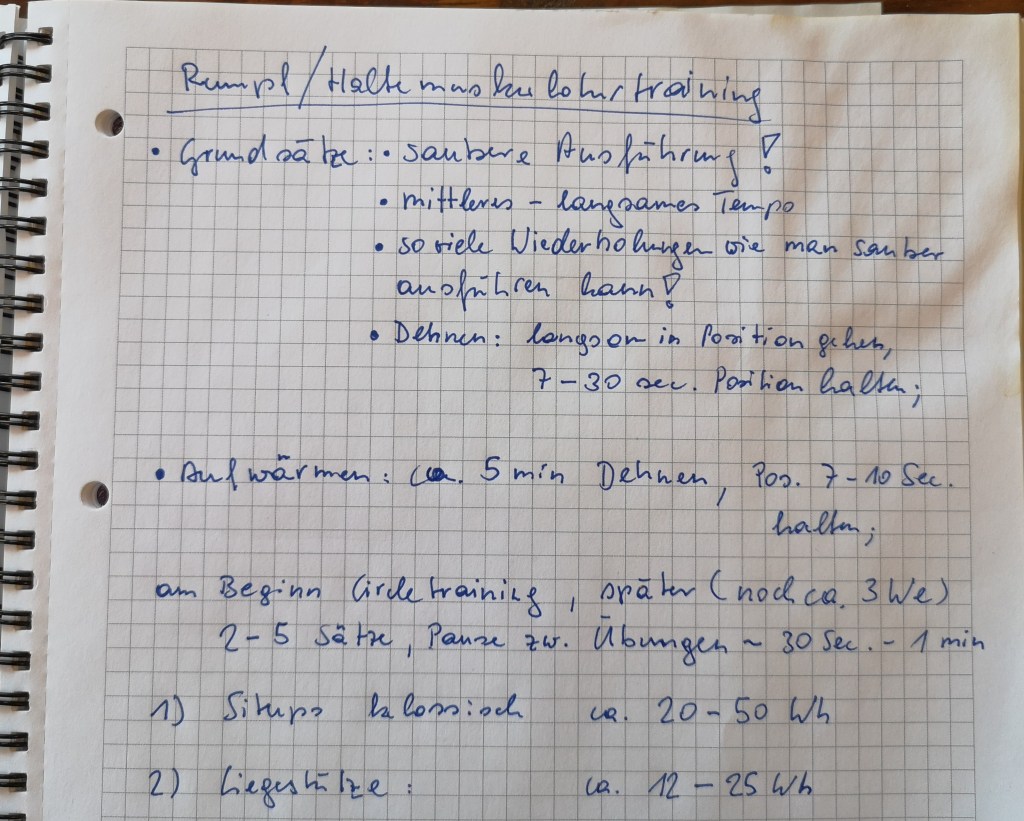 Rumpf/Haltemuskulaturtraining
• Grundsätze: • saubere Ausführung!
• mittleres - langsames Tempo
• so viele Wiederholungen wie man sauber
ausführen kann!
• Dehnen: langsam in Position gehen,
7-30 sec. Position halten;
• Aufwärmen: ca. 5 min Dehnen, Pos. 7-10 Sec.
halten;
am Beginn Circletraining, später (nach ca. 3 We)
2-5 Sätze, Pause zw. Übungen ~ 30 Sec. - 1 min
1) Situps klassisch ca. 20-50 Wh
2) Liegestütze: ca. 12-25 Wh